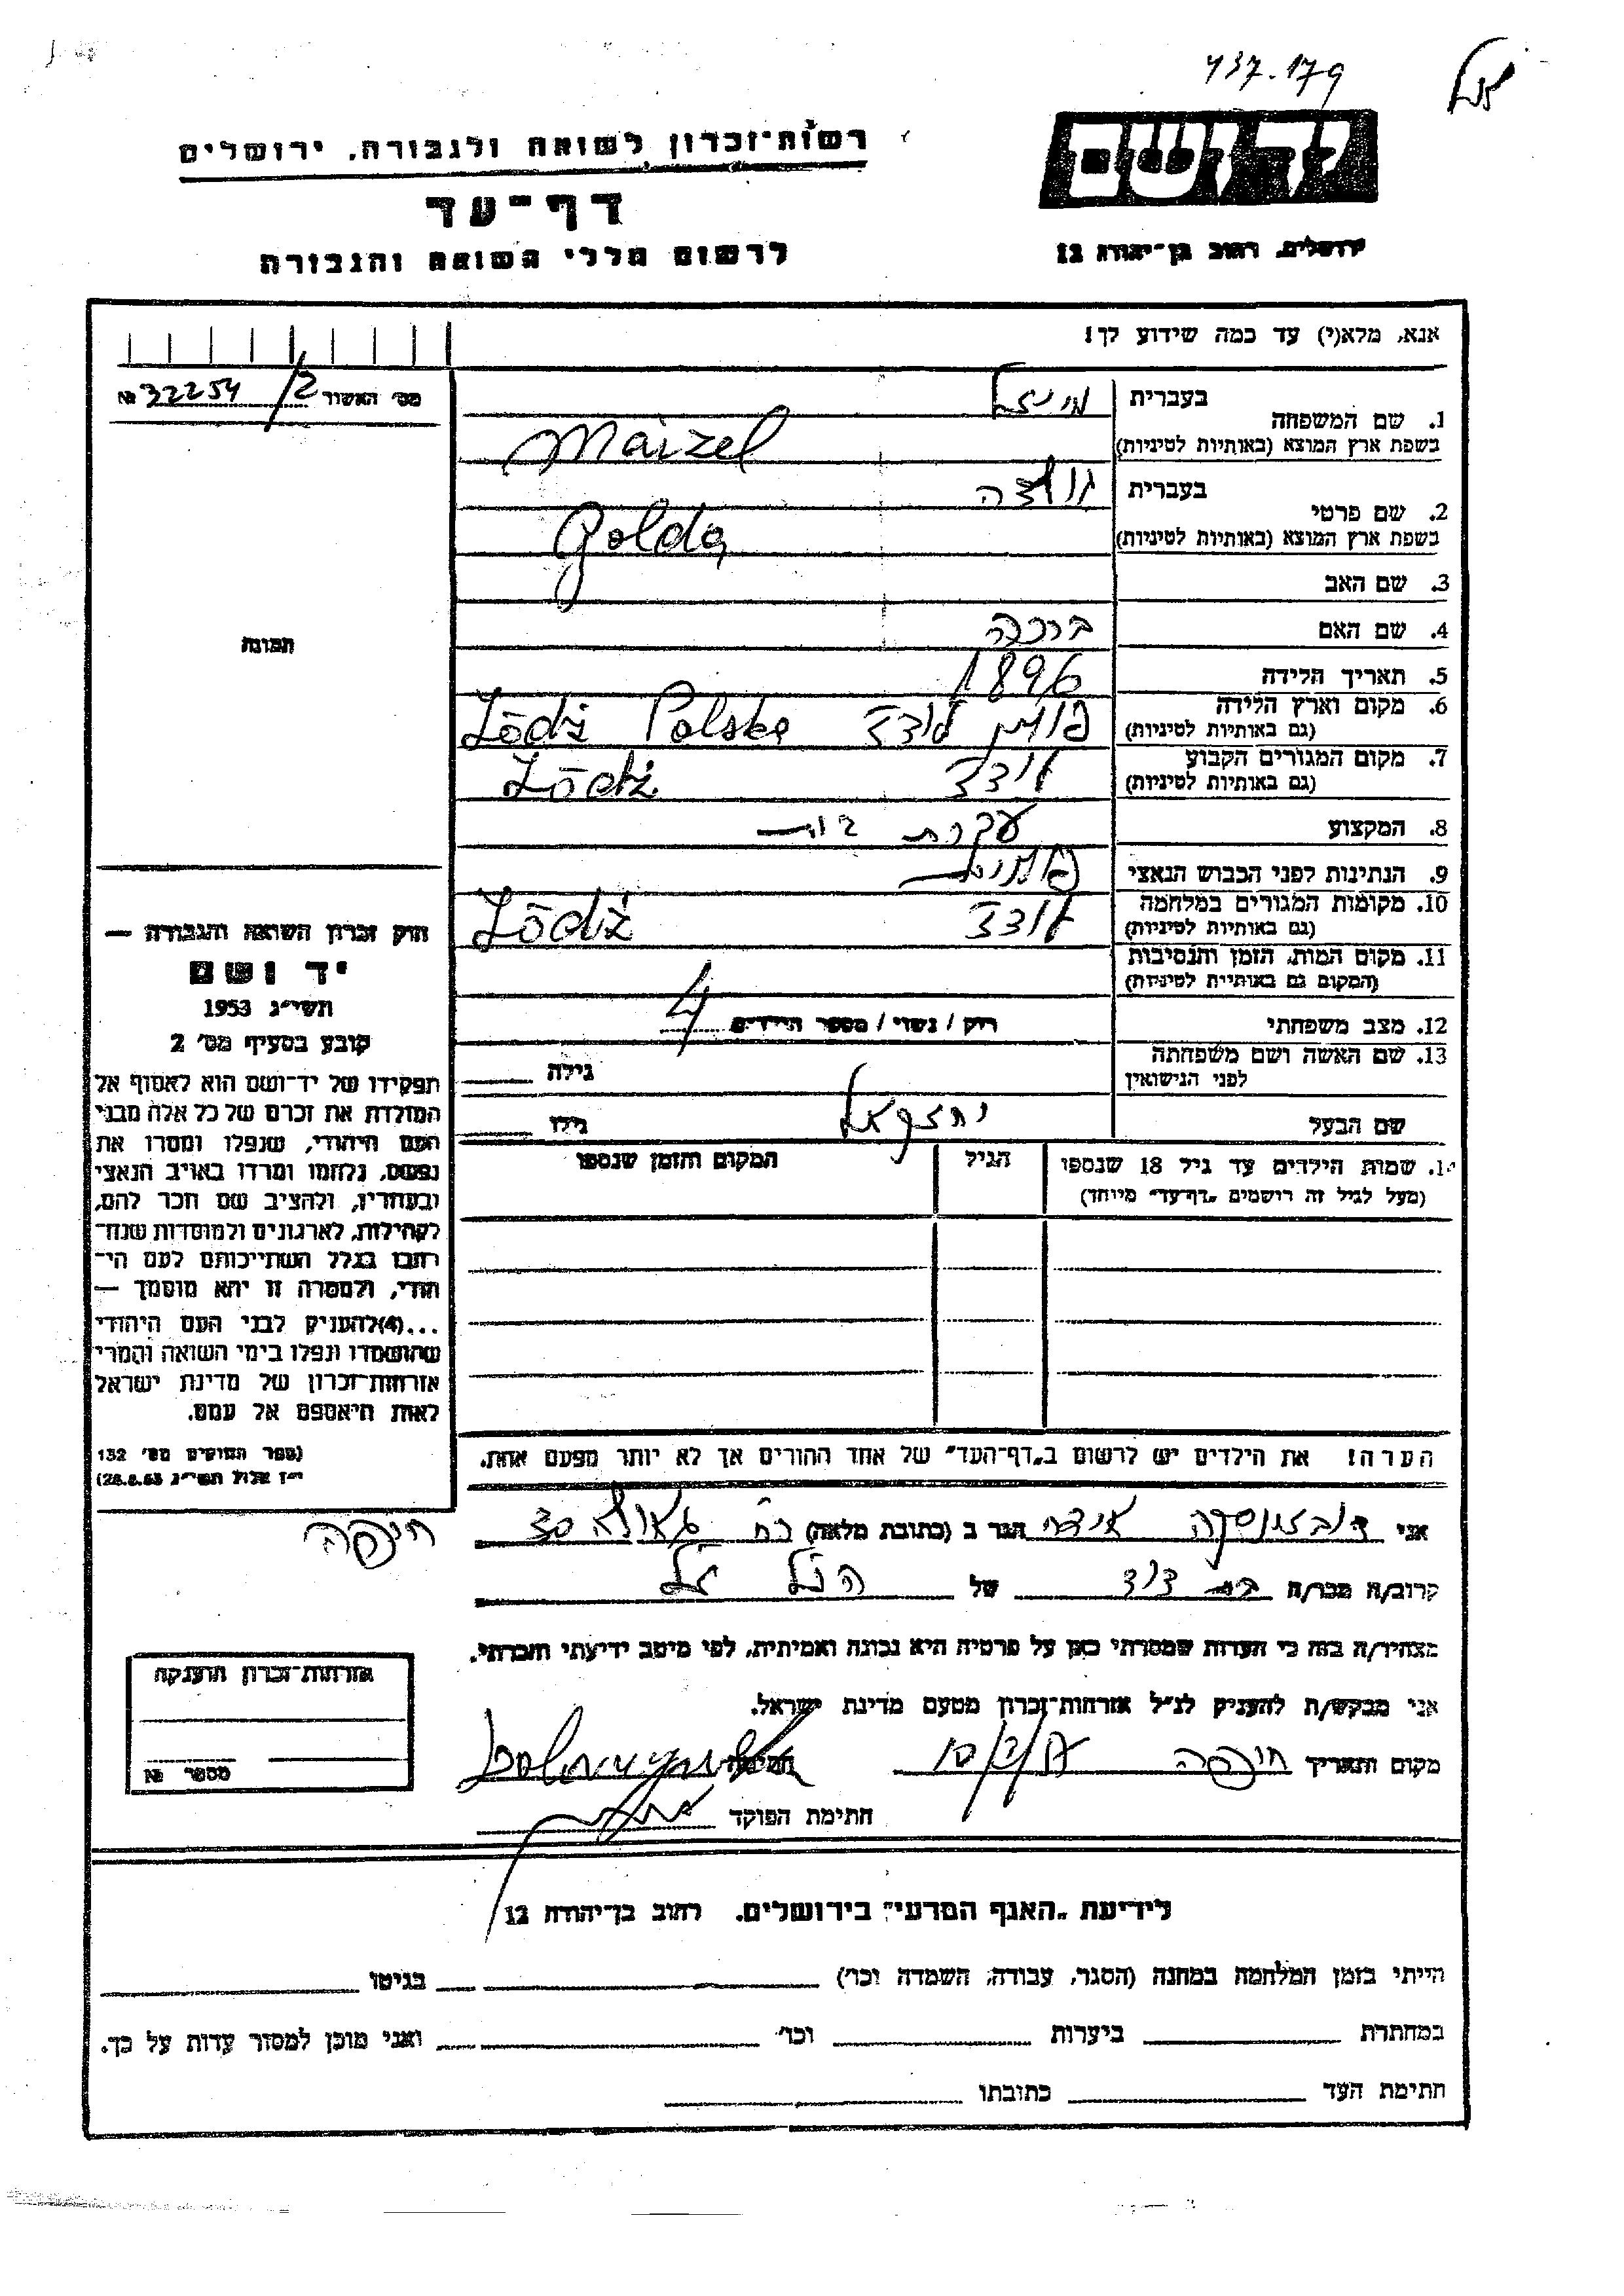 437.179
יד ושם
רשות־זכרון לשואה ולגבורה, ירושלים
דף־עד
לרשום חללי השואה והגבורה
ירושלים, רחוב בן־יהודה 12
אנא, מלא(י) עד כמה שידוע לך!
מס' האשור 2/ 32254 №
1. שם המשפחה
בעברית מייזל
בשפת ארץ המוצא (באותיות לטיניות) Maizel
2. שם פרטי
בעברית גולדה
בשפת ארץ המוצא (באותיות לטיניות) Golda
3. שם האב
4. שם האם ברכה
5. תאריך הלידה 1896
6. מקום וארץ הלידה פולין לודז Łódź Polska
(גם באותיות לטיניות)
7. מקום המגורים הקבוע לודז Łódź
(גם באותיות לטיניות)
8. המקצוע עקרת בית
9. הנתינות לפני הכבוש הנאצי פולנית
10. מקומות המגורים במלחמה לודז Łódź
(גם באותיות לטיניות)
11. מקום המות, הזמן והנסיבות
(המקום גם באותיות לטיניות)
12. מצב משפחתי רוק / נשוי / מספר הילדים 4
13. שם האשה ושם משפחתה
לפני הנישואין גילה
שם הבעל יחזקאל גילו
14. שמות הילדים עד גיל 18 שנספו הגיל המקום והזמן שנספו
(מעל לגיל זה רושמים „דף־עד" מיוחד)
תמונה
חוק זכרון השואה והגבורה —
יד ושם
תשי"ג 1953
קובע בסעיף מס' 2
תפקידו של יד־ושם הוא לאסוף אל
המולדת את זכרם של כל אלה מבני
העם היהודי, שנפלו ומסרו את
נפשם, נלחמו ומרדו באויב הנאצי
ובעוזריו, ולהציב שם וזכר להם,
לקהילות, לארגונים ולמוסדות שנח־
רבו בגלל השתייכותם לעם הי־
הודי, ולמטרה זו יהא מוסמך —
...(4)להעניק לבני העם היהודי
שהושמדו ונפלו בימי השואה והמרי
אזרחות־זכרון של מדינת ישראל
לאות היאספם אל עמם.
(ספר החוקים מס' 132
י"ז אלול תשי"ג 28.8.53)
הערה! את הילדים יש לרשום ב„דף־העד" של אחד ההורים אך לא יותר מפעם אחת.
אני דוברזינסקה אידה הגר ב (כתובת מלאה) רח' גאולה 30 חיפה
קרוב/ה מכר/ה בת דוד של הנ"ל
מצהיר/ה בזה כי העדות שמסרתי כאן על פרטיה היא נכונה ואמיתית, לפי מיטב ידיעתי והכרתי.
אני מבקש/ת להעניק לנ"ל אזרחות־זכרון מטעם מדינת ישראל.
מקום ותאריך חיפה חתימה
חתימת הפוקד
אזרחות־זכרון הוענקה
מספר №
לידיעת „האגף המדעי" בירושלים, רחוב בן־יהודה 12
הייתי בזמן המלחמה במחנה (הסגר, עבודה, השמדה וכו') בגיטו
במחתרת ביערות וכו' ואני מוכן למסור עדות על כך.
חתימת העד כתובתו